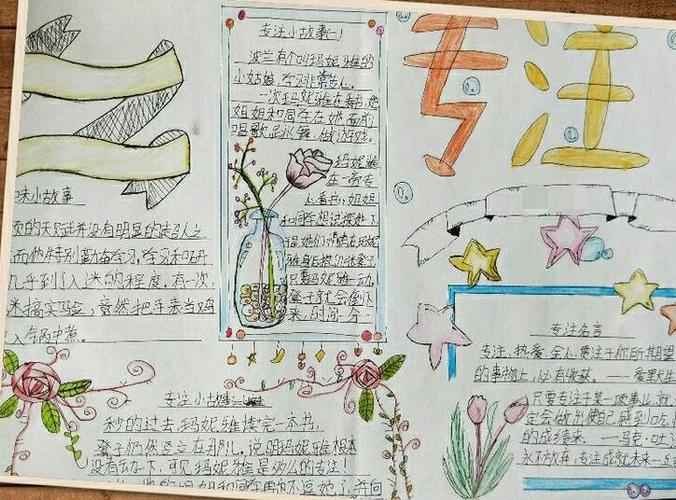 专注
味小故事
顿的天赋并没有明显的过人之
而他特别勤奋学习,学习和钻研
几乎到了入迷的程度,有一次,
迷搞实验,竟然把手表当鸡
入锅中煮。
专注小故事一!
波兰有个叫玛妮雅的
小姑娘,学习非常专心。
一次玛妮雅在看书,她
姐姐和同学在她面前
唱歌、跳舞、做游戏。
玛妮雅
在一旁专
心看书,姐姐
和同学想试探她一下
雅身后搭几张凳子
只要玛妮雅一动,
凳子就会倒下
来,时间一分一
专注小故事
秒的过去,玛妮雅读完一本书,
凳子仍然竖立在那儿,说明玛妮雅根本
没有动一下,可见玛妮雅是多么的专注!
专注名言
专注、热爱、全心贯注于你所期望
的事物上,必有收获。——爱默生
只要专注于某一项事业,就一
定会做出使自己感到吃惊
的成绩来。——马克·吐温
永不放弃,专注成就未来